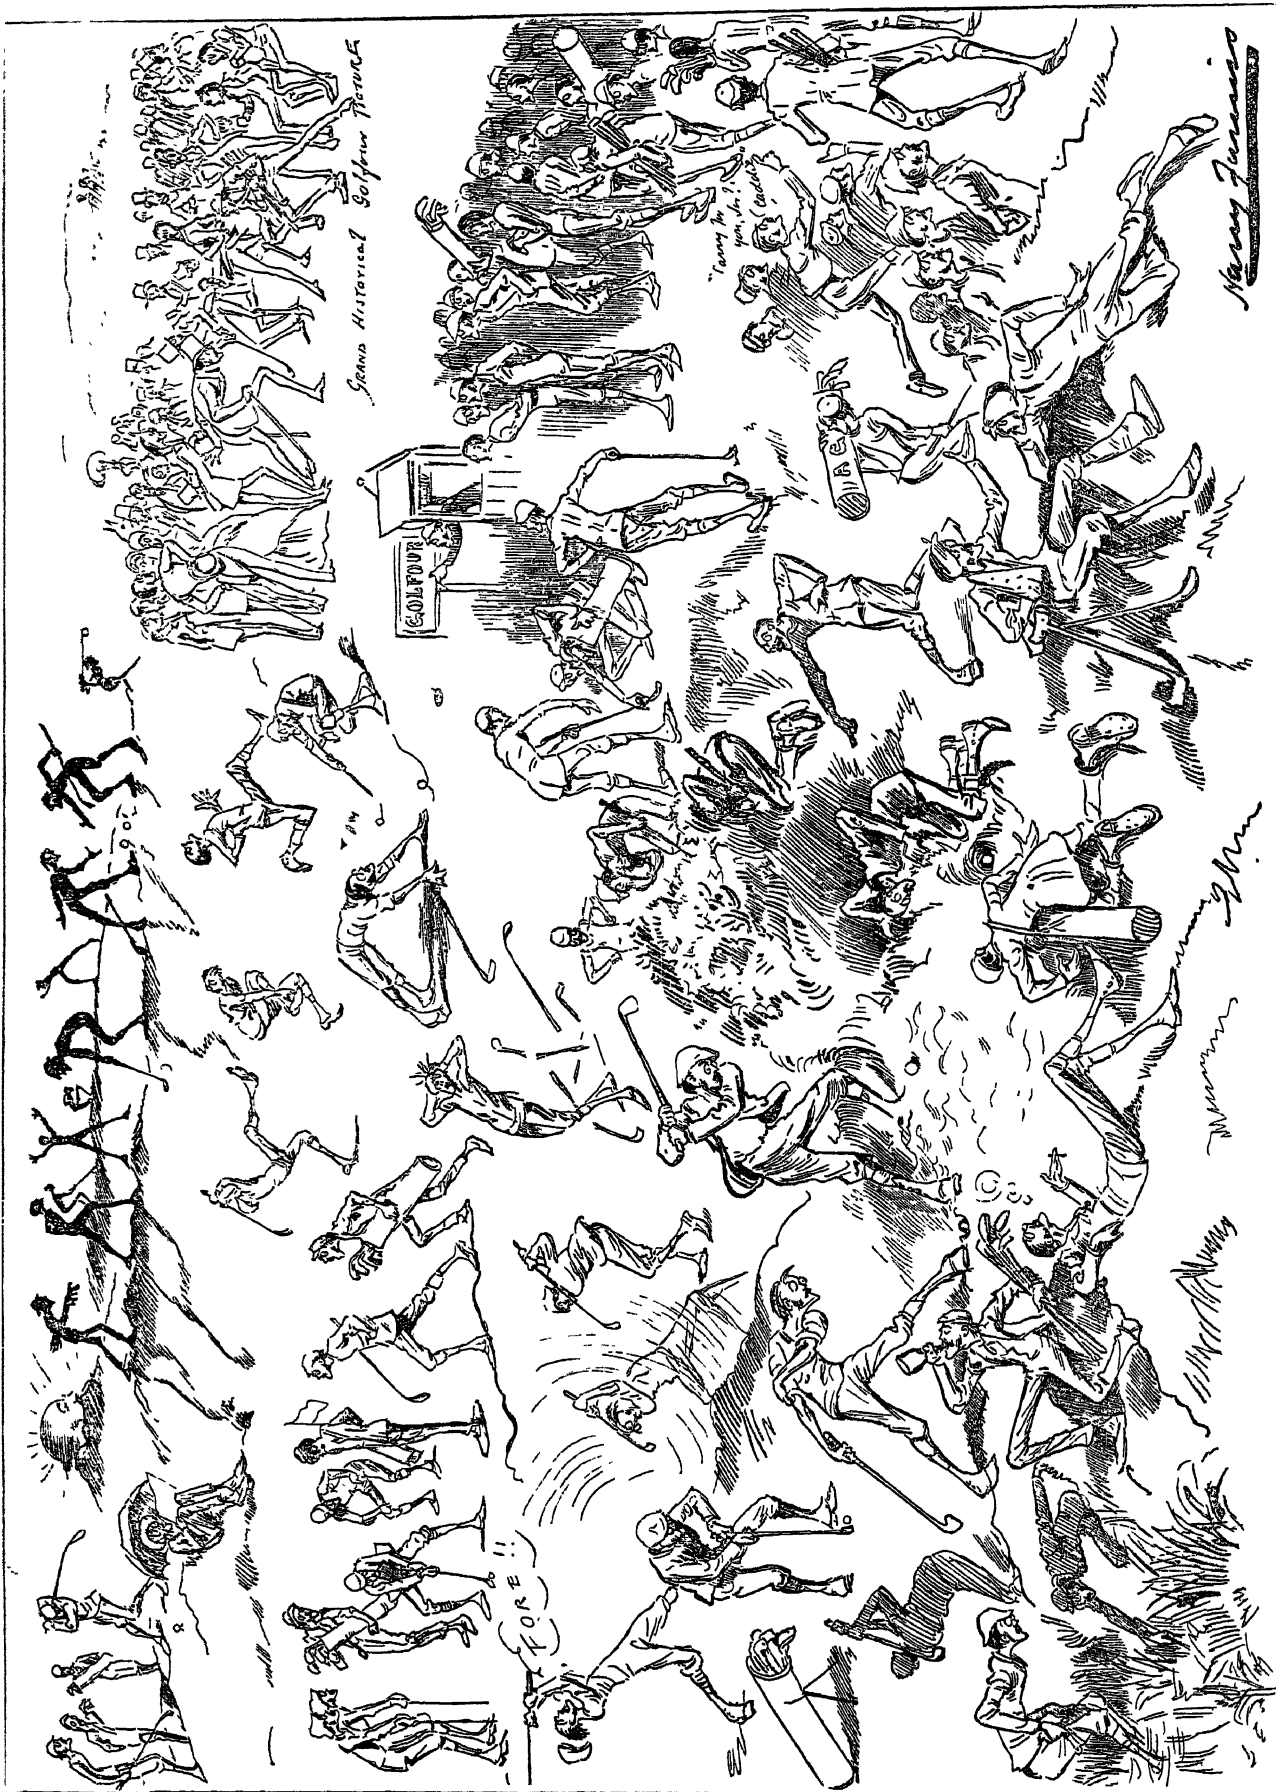 GRAND HISTORICAL Golfour PICTURE
GOLFOUR
"Carry for
you, Sir?"
FORE!!
Harry Furniss